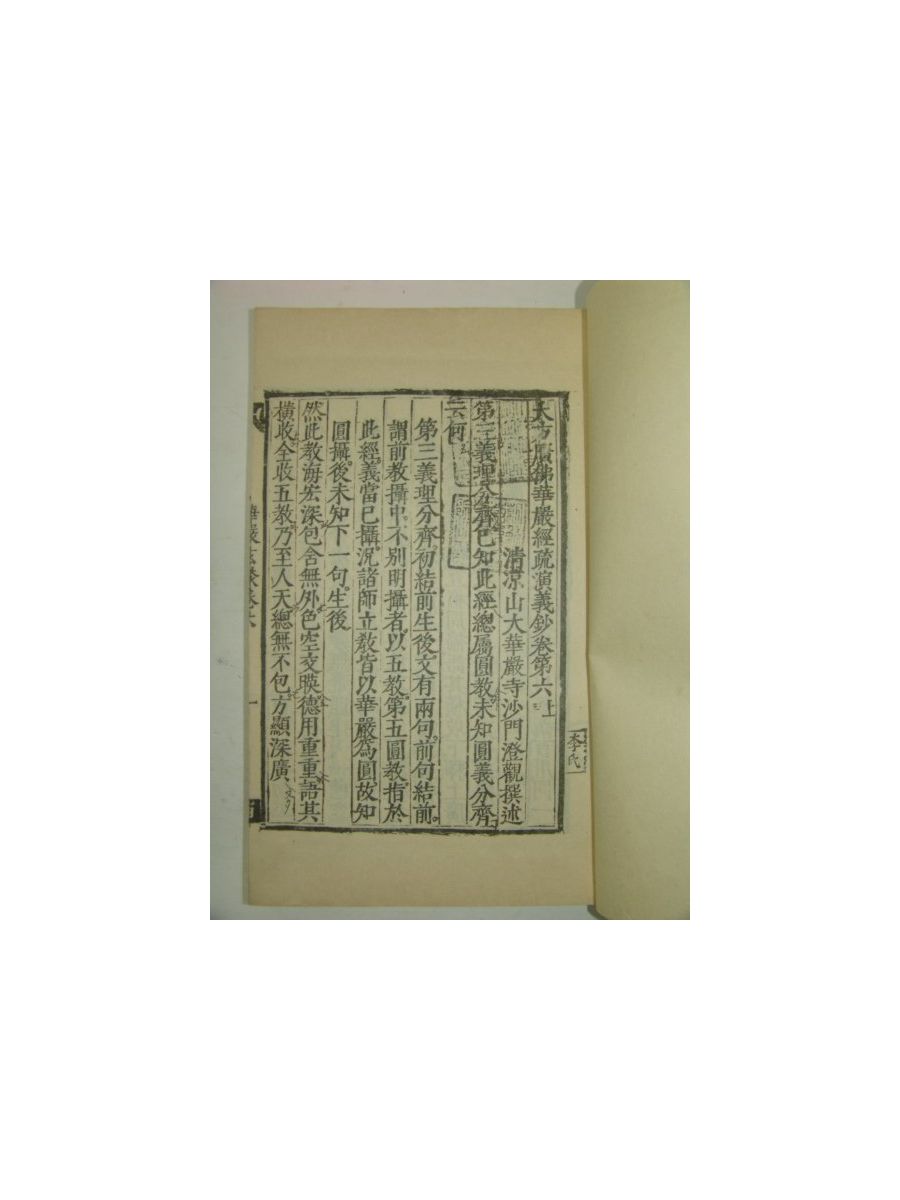 大方廣佛華嚴經疏演義鈔卷第六上
清凉山大華嚴寺沙門澄觀撰述
第三義理分齊已知此經總屬圓教未知圓義分齊
云何
第三義理分齊初結前生後文有兩句前句結前。
謂前教攝中。不別明攝者。以五教。第五圓教。指於
此經。義當已攝。況諸師立教皆以華嚴為圓。故知
圓攝後。未知下一句。生後
然此教海宏深包含無外色空交暎德用重重語其
橫收全收五教乃至人天總無不包方顯深廣
李氏